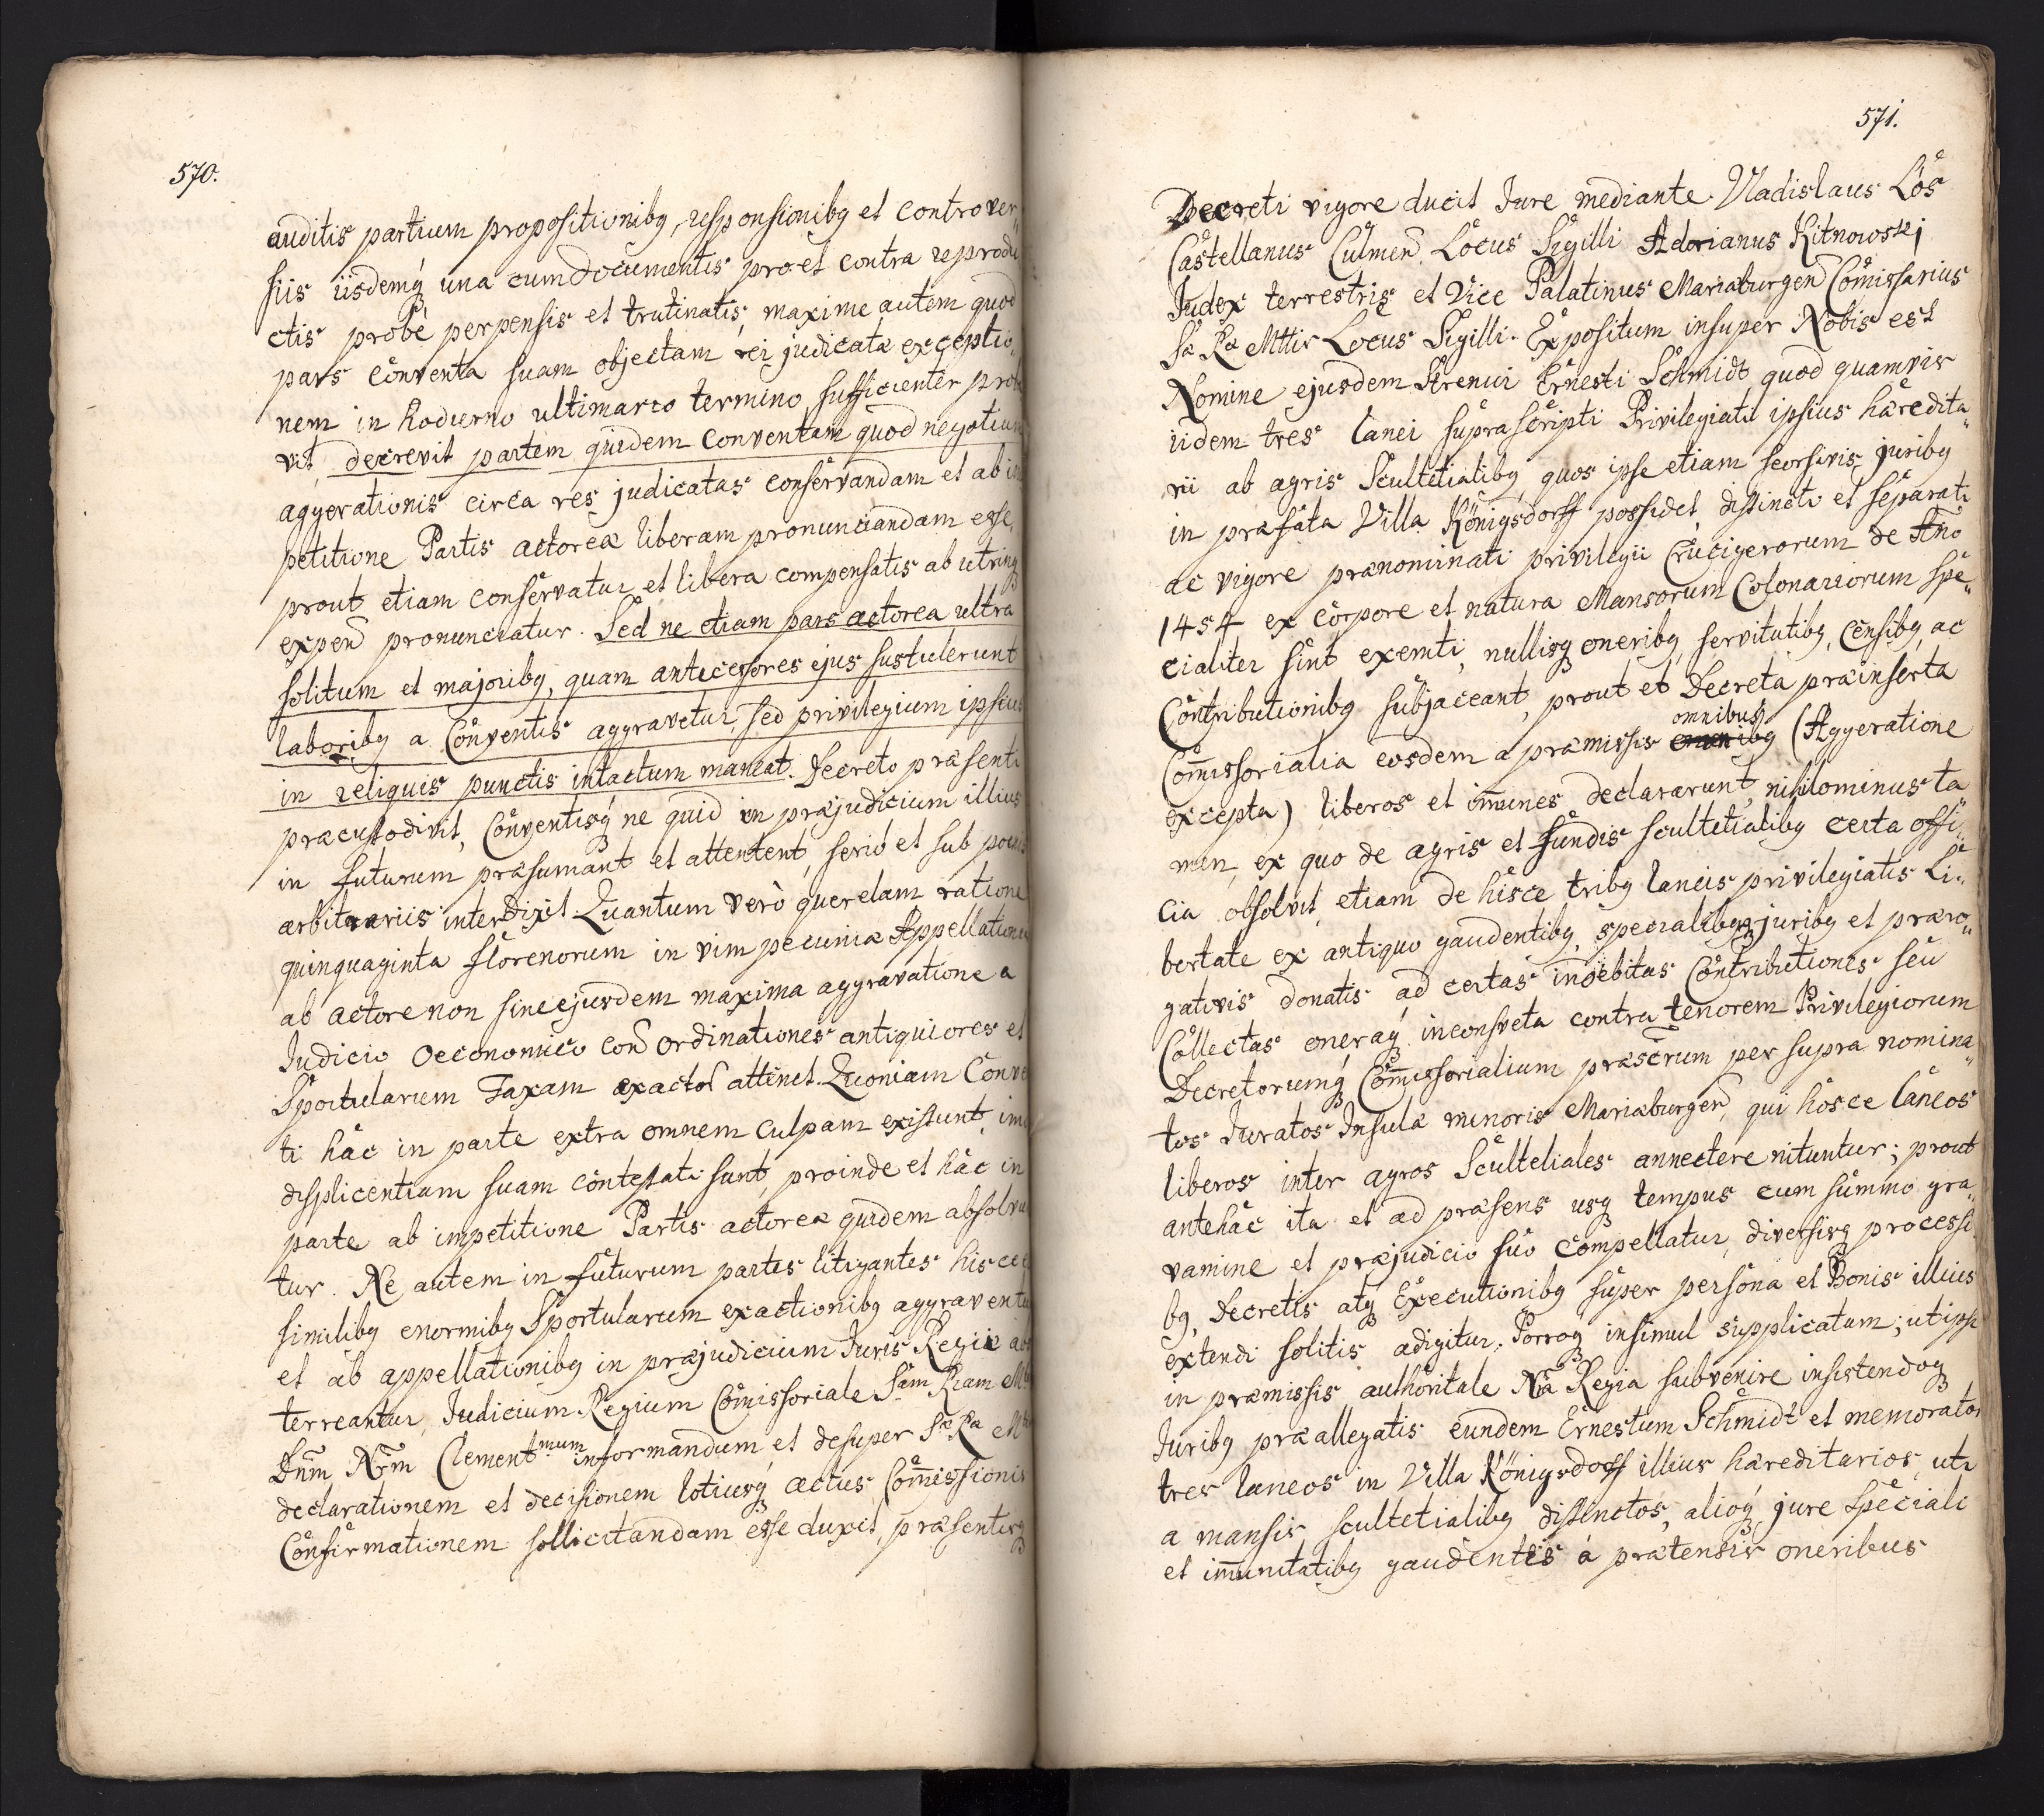 570.
auditis partium propositionibq, responsionibq et controver„
siis iisdemq́ una cum documentis pro et contra reprodu
ctis probè perpensis et trutinatis, maxime autem quod
pars conventa suam objectam rei judicatæ exceptio„
nem in hodierno ultimario termino sufficienter proba
vit, decrevit partem quidem conventam quod negotium
aggerationis circa res judicatas conservandam et ab im
petitione Partis actoreæ liberam pronunciandam esse,
prout etiam conservatur et libera compensatis ab utrinq
expen pronunciatur. Sed ne etiam pars actorea ultra
solitum et majoribq, quam antecessores ejus sustulerunt
laboribq a Conventis aggravetur, sed privilegium ipsius
in reliquis punctis intactum maneat. Decreto præsenti
præcustodivit, Conventisq́ ne quid in præjudicium illius
in futurum præsumant et attentent, serio et sub pœnis
arbitrariis interdixit. Quantum verò querelam ratione
quinquaginta florenorum in vim pecuniæ Appellationis
ab actore non sine ejusdem maxima aggravatione a
Judicio Oeconomico con ordinationes antiquiores et
Sportularum Taxam exactor attinet. Quoniam Conven
ti hâc in parte extra omnem culpam existunt, imo
displicentiam suam contestati sunt, proinde et hâc in
parte ab impetitione Partis actoreæ quidem absolvun
tur. Ne autem in futurum partes litigantes hisce e
similibq enormibq Sportularum exactionibq aggraventur
et ab appellationibq in præjudicium Juris Regii ab
terreantur, Judicium Regium Com̄issoriale Sam Ram Mttem
Dnm̄ Nrm̄ Clement.mum informandum et desuper Sæ Ræ Mttis
declarationem et decisionem totiusq́ actus Com̄issionis
Confirmationem sollicitandam esse duxit, præsentisq
571.
Decreti vigore ducit Jure mediante. Vladislaus Łôs
Castellanus Culmen. Locus Sigilli Adorianus Kitnowskj
Judex terrestris et Vice Palatinus Mariæburgen Com̄issarius
Sæ Ræ Mttis Locus Sigilli. Expositum insuper Nobis est
Nomine ejusdem Strenui Ernesti Schmidt, quod quamvis
iidem tres lanei suprascripti Privilegiati ipsius hæredita„
rii ab agris Scultetialibq, quos ipse etiam seorsivis juribq
in præfata Villa Königsdorff possidet, distincti et separati
ac vigore prænominati privilegii Crucigerorum de Anō
1454 ex corpore et natura Mansorum Colonariorum spe„
cialiter sint exemti, nullisq oneribq, servitutibq, censibq, ac
Contributionibq subjaceant, prout et Decreta præinserta
Com̄issorialia eosdem a præmissis omnibus (Aggeratione
excepta) liberos et im̄unes declararunt, nihilominus ta
men, ex quo de agris et fundis scultetialibq certa offi„
cia obsolvit, etiam de hisce tribq laneis privilegiatis Li„
bertate ex antiquo gaudentibq, specialibqq juribq et præro„
gativis donatis, ad certas indebitas Contributiones seu
Collectas oneraq́ inconsveta contra tenorem Privilegiorum
Decretorumq́ Com̄issorialium præsertum per supra nomina„
tos Juratos Insulæ minoris Mariæburgen, qui hosce laneos
liberos inter agros Sculteliales annectere nituntur; prout
antehâc ita et ad præsens usq tempus cum summo gra„
vamine et præjudicio suo compellatur, diversisq processi„
bq, Decretis atq Executionibq super persona et Bonis illius
extendi solitis adigitur. Porroq insimul supplicatum; ut ipsi
in præmissis authoritate Nrā Regia subvenire insistendoq
Juribq præallegatis eundem Ernestum Schmidt et memoratos
tres laneos in Villa Königsdorff illius hæreditarios, uti
a mansis scultetialibq distinctos, alioq́ jure speciali
et im̄unitatibq gaudentes à prætensis oneribus